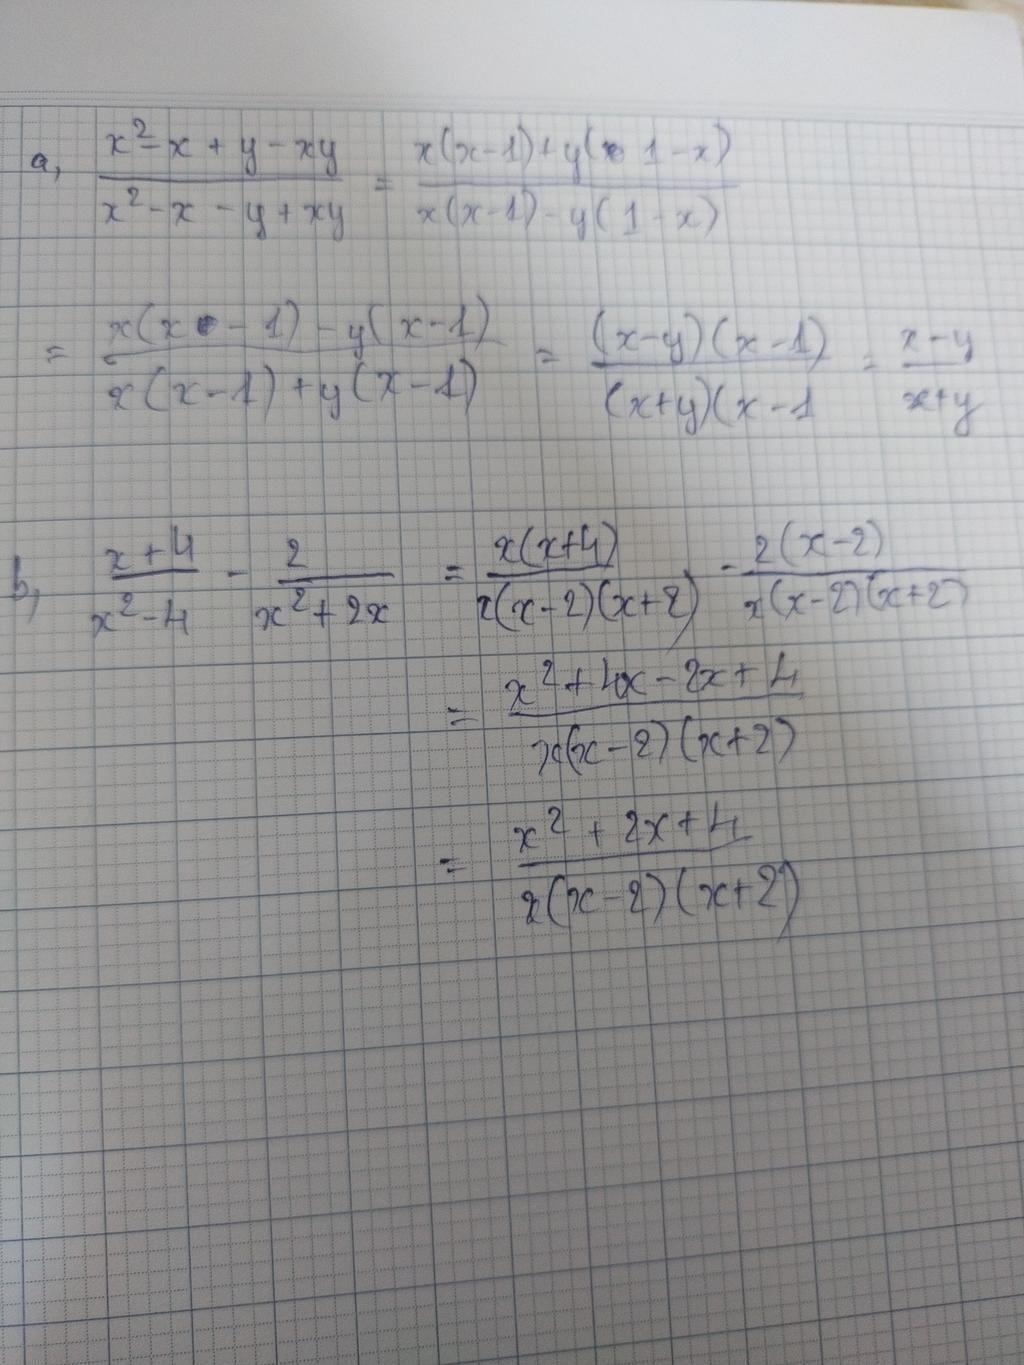 a, (x² - x + y - xy)/(x² - x - y + xy) = (x(x-1) + y(1-x))/(x(x-1) - y(1-x))
= (x(x-1) - y(x-1))/(x(x-1) + y(x-1)) = ((x-y)(x-1))/((x+y)(x-1) = (x-y)/(x+y)
b, (x+4)/(x²-4) - 2/(x²+2x) = (x(x+4))/(x(x-2)(x+2)) - (2(x-2))/(x(x-2)(x+2))
= (x²+4x-2x+4)/(x(x-2)(x+2))
= (x²+2x+4)/(x(x-2)(x+2))